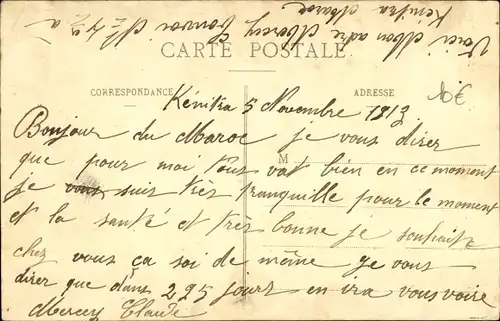 Voici Mon adre Mercey
Kenitra Maroc
CARTE POSTALE
CORRESPONDANCE
ADRESSE
10€
Kénitra 5 Novembre 1913
Bonjour du Maroc je vous direz
que pour moi tous vat bien en ce moment
M
je vous suis tres tranquille pour le moment
et la santé et très bonne je souhaite
chez vous ça soi de même je vous
direz que dans 225 jours en ira vous voire
Mercey Claude